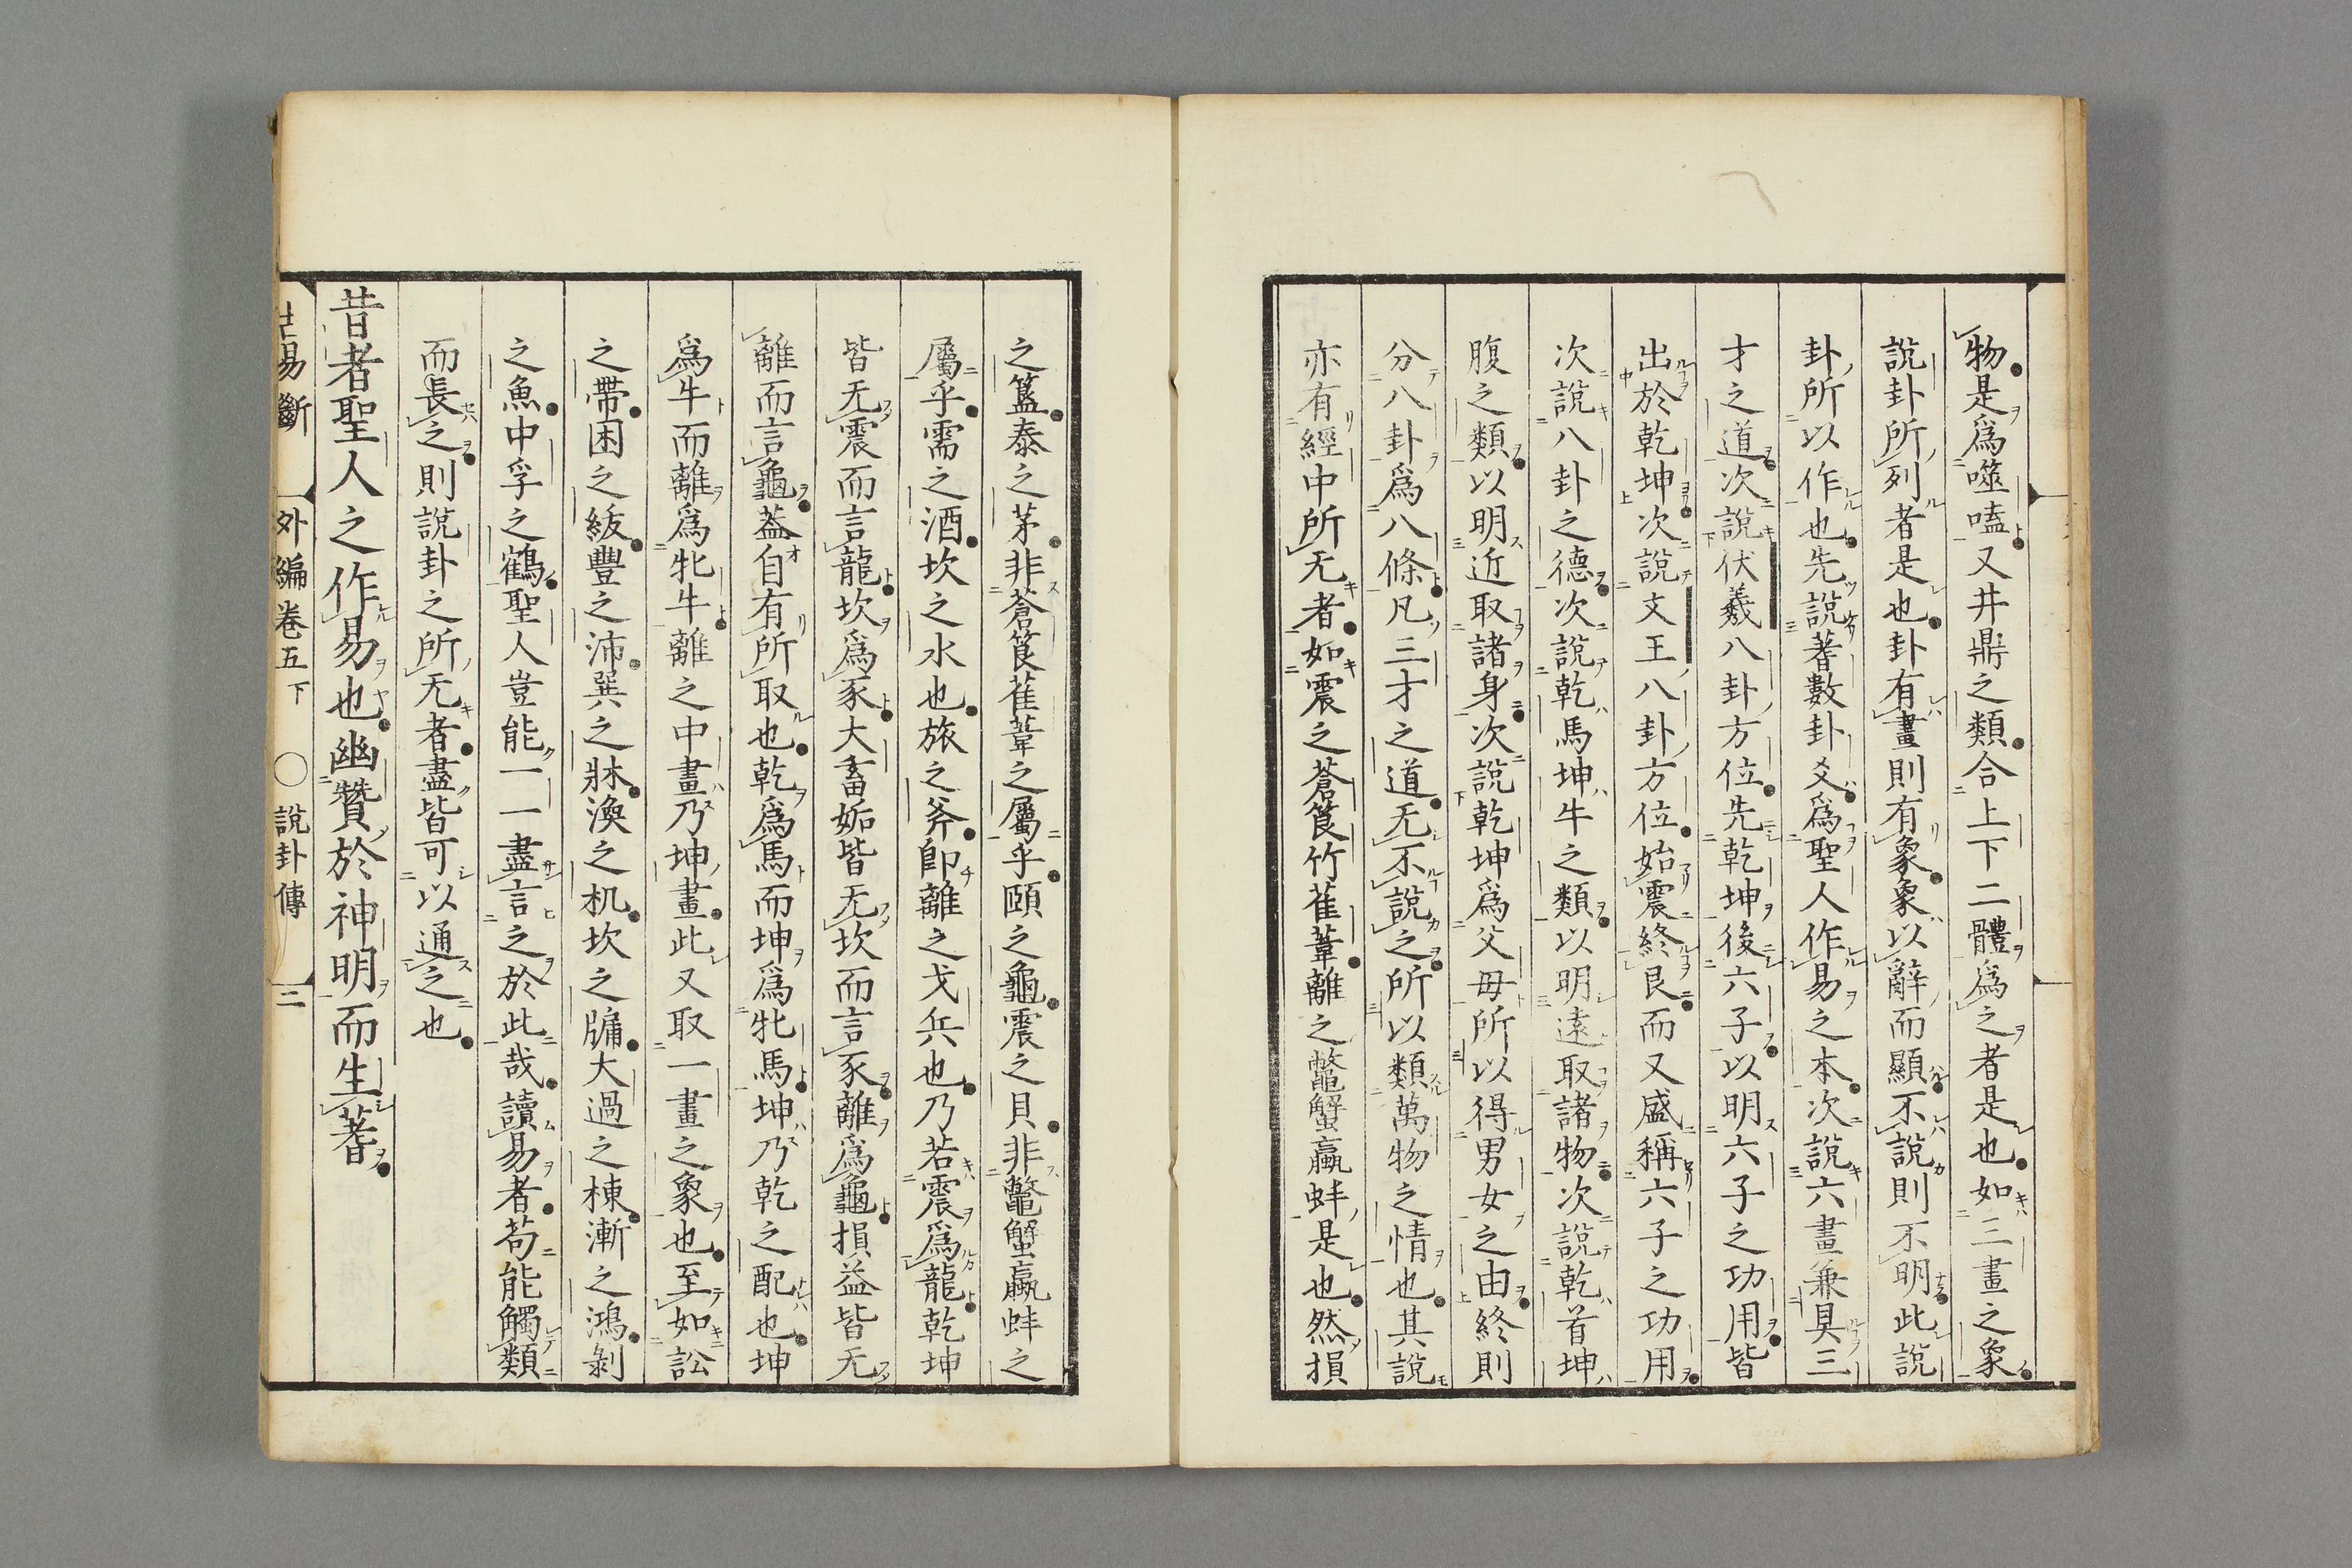 物是爲噬嗑又井鼎之類合上下二體爲之者是也如三畫之象
說卦所列者是也卦有畫則有象象以辭而顯不說則不明此說
卦所以作也先說蓍數卦爻爲聖人作易之本次說六畫兼具三
才之道次說伏羲八卦方位先乾坤後六子以明六子之功用皆
出於乾坤次說文王八卦方位始震終艮而又盛稱六子之功用
次說八卦之德次說乾馬坤牛之類以明遠取諸物次說乾首坤
腹之類以明近取諸身次說乾坤爲父母所以得男女之由終則
分八卦爲八條凡三才之道无不說之所以類萬物之情也其說
亦有經中所无者如震之蒼筤竹萑葦離之鼈蟹蠃蚌是也然損
之簋泰之茅非蒼筤萑葦之屬乎頤之龜震之貝非鼈蟹蠃蚌之
屬乎需之酒坎之水也旅之斧卽離之戈兵也乃若震爲龍乾坤
皆无震而言龍坎爲豕大畜姤皆无坎而言豕離爲龜損益皆无
離而言龜葢自有所取也乾爲馬而坤爲牝馬坤乃乾之配也坤
爲牛而離爲牝牛離之中畫乃坤畫此又取一畫之象也至如訟
之帶困之紱豐之沛巽之牀渙之机坎之牖大過之棟漸之鴻剝
之魚中孚之鶴聖人豈能一一盡言之於此哉讀易者苟能觸類
而長之則說卦之所无者盡皆可以通之也
昔者聖人之作易也幽贊於神明而生蓍
古易斷 外編卷五下 ○ 說卦傳 二